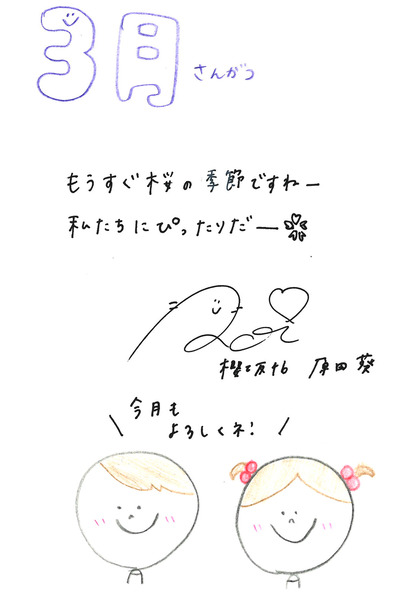 3月 さんがつ
もうすぐ桜の季節ですねー
私たちにぴったりだー
Aoi
櫻坂46 原田葵
今月も
よろしくネ!